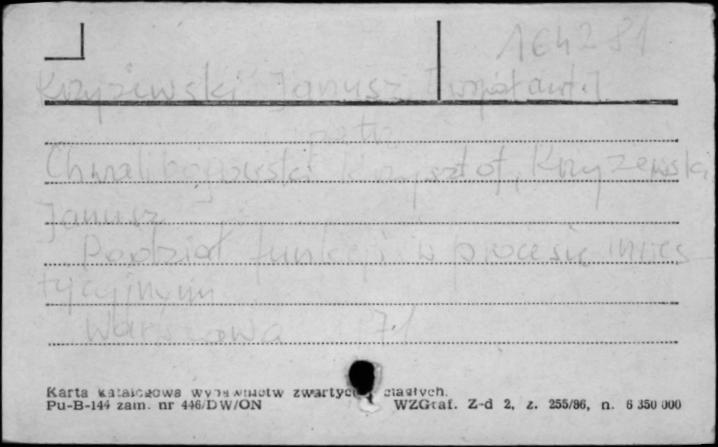 164281
Krzyżewski Janusz [współaut.]
patrz
Chwalibogowski Krzysztof, Krzyżewski
Janusz
Podział funkcji w procesie inwes-
tycyjnym
Warszawa 71
Karta katalogowa wydawnictw zwartych ciągłych.
Pu-B-144 zam. nr 446/DW/ON WZGraf. Z-d 2, z. 255/86, n. 6 350 000